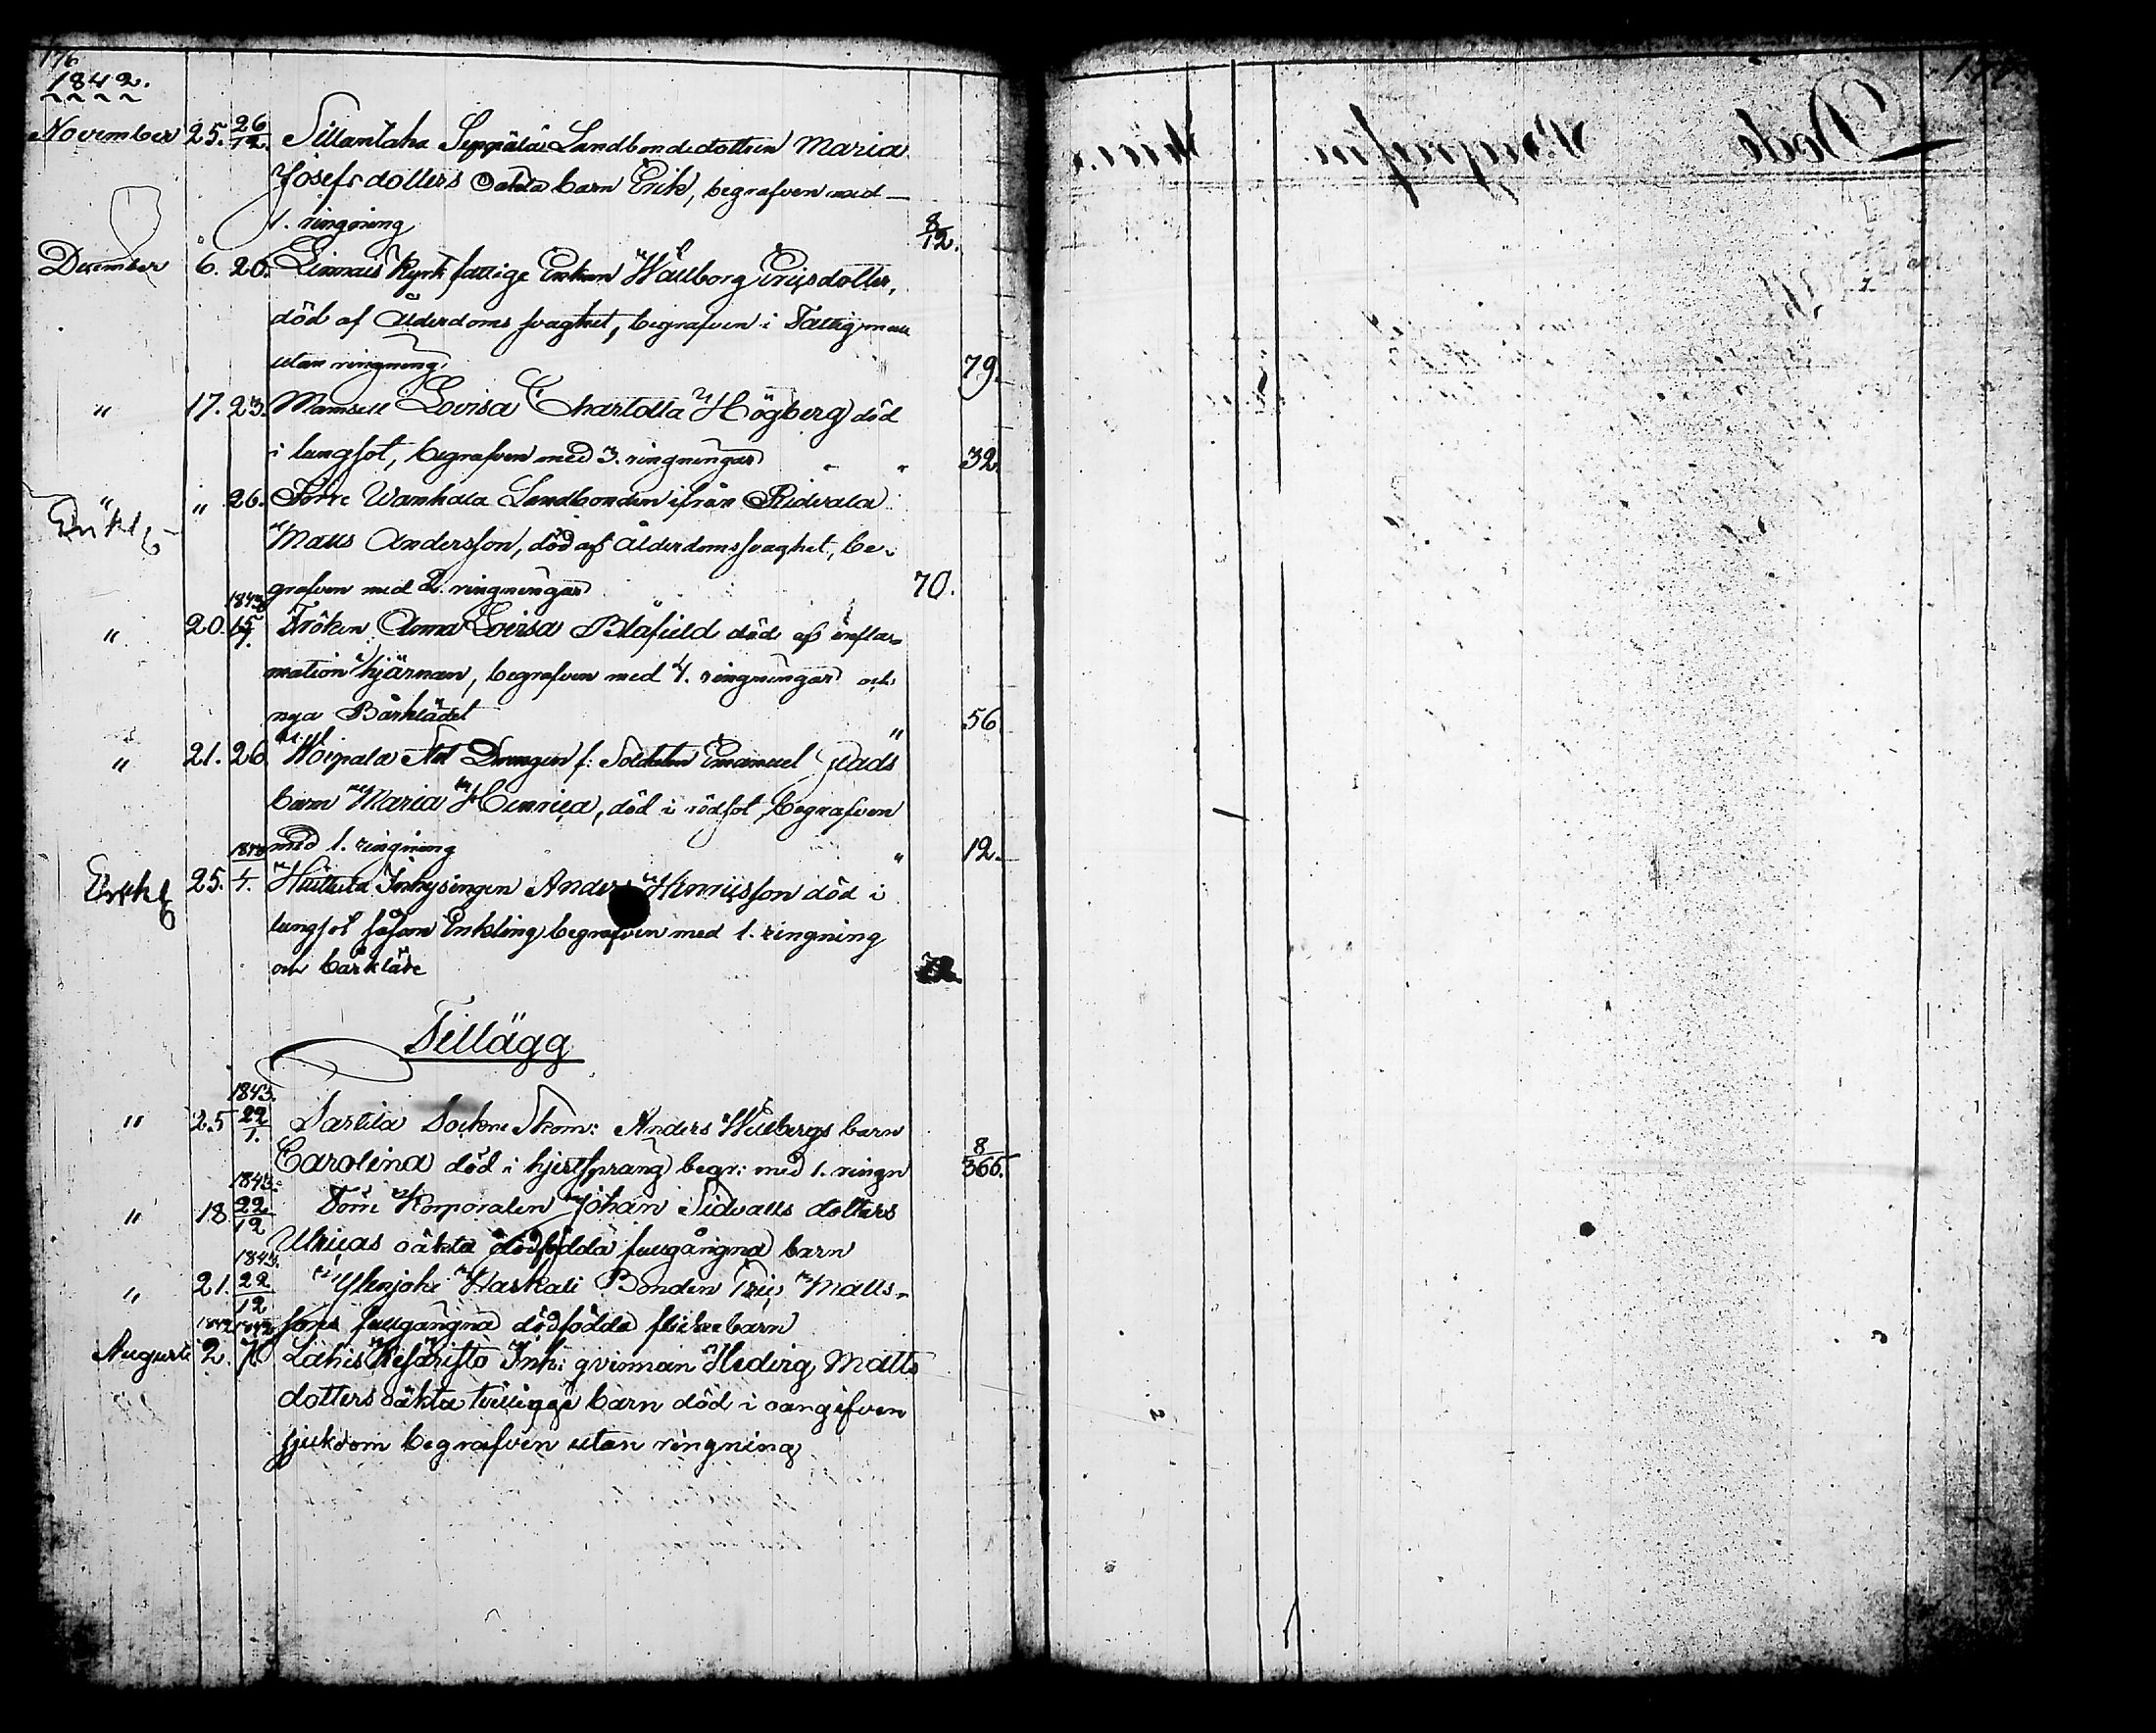 176
1842.
November 25. 26/12. Sillantaka Seppälä Landbondedottren Maria
Josefsdotters oäkta barn Erik, begrafven med
1. ringning 8/12.
December 6. 20. Kyrkfattige Enkan Wallborg Ericsdotter,
död af Ålderdoms svaghet, begrafven i Fattigman
utan ringning. 79.
" 17. 23. Mamsell Lovisa Charlotta Högberg död
i lungsot, begrafven med 3. ringningar " " 32.
" " 26. Förre Wanhala Landbonden ifrån
Matts Andersson, död af Ålderdomssvaghet, be-
grafven med 2. ringningar 70.
1843
" 20. 15/1. Fröken Anna Lovisa Blåfield död af infla-
mation i hjärnan, begrafven med 4. ringningar och
nya Bårklädet " 56
" 21. 26. Woipala Drengen f: Soldaten Emanuel Glads
barn Maria Henrica, död i rödsot, begrafven
med 1. ringning " 12.
1843
Enkl 25. 1. Huittula Inhysingen Anders Henricsson död i
lungsot såsom Enkling begrafven med 1. ringning
och bårkläde
Tillägg
1843.
" 25 22/1. Sartila Sockne Skom: Anders Willbergs barn
Carolina död i hjertsprång begr: med 1. ringn 8/365.
1843.
" 18 22/12 Korporalen Johan Sidvalls dotters
Ulricas oäkta dödfödda fullgångna barn
1843.
" 21. 22/12 Ylenjoki Haskali Bonden Eric Matts-
sons fullgångna dödfödda flickebarn
1842 1842
Augusti 2. Lahis Kesäristo Inh: qvinnan Hedvig Matts
dotters oäkta tvillinge barn död i oangifven
sjukdom begrafven utan ringning